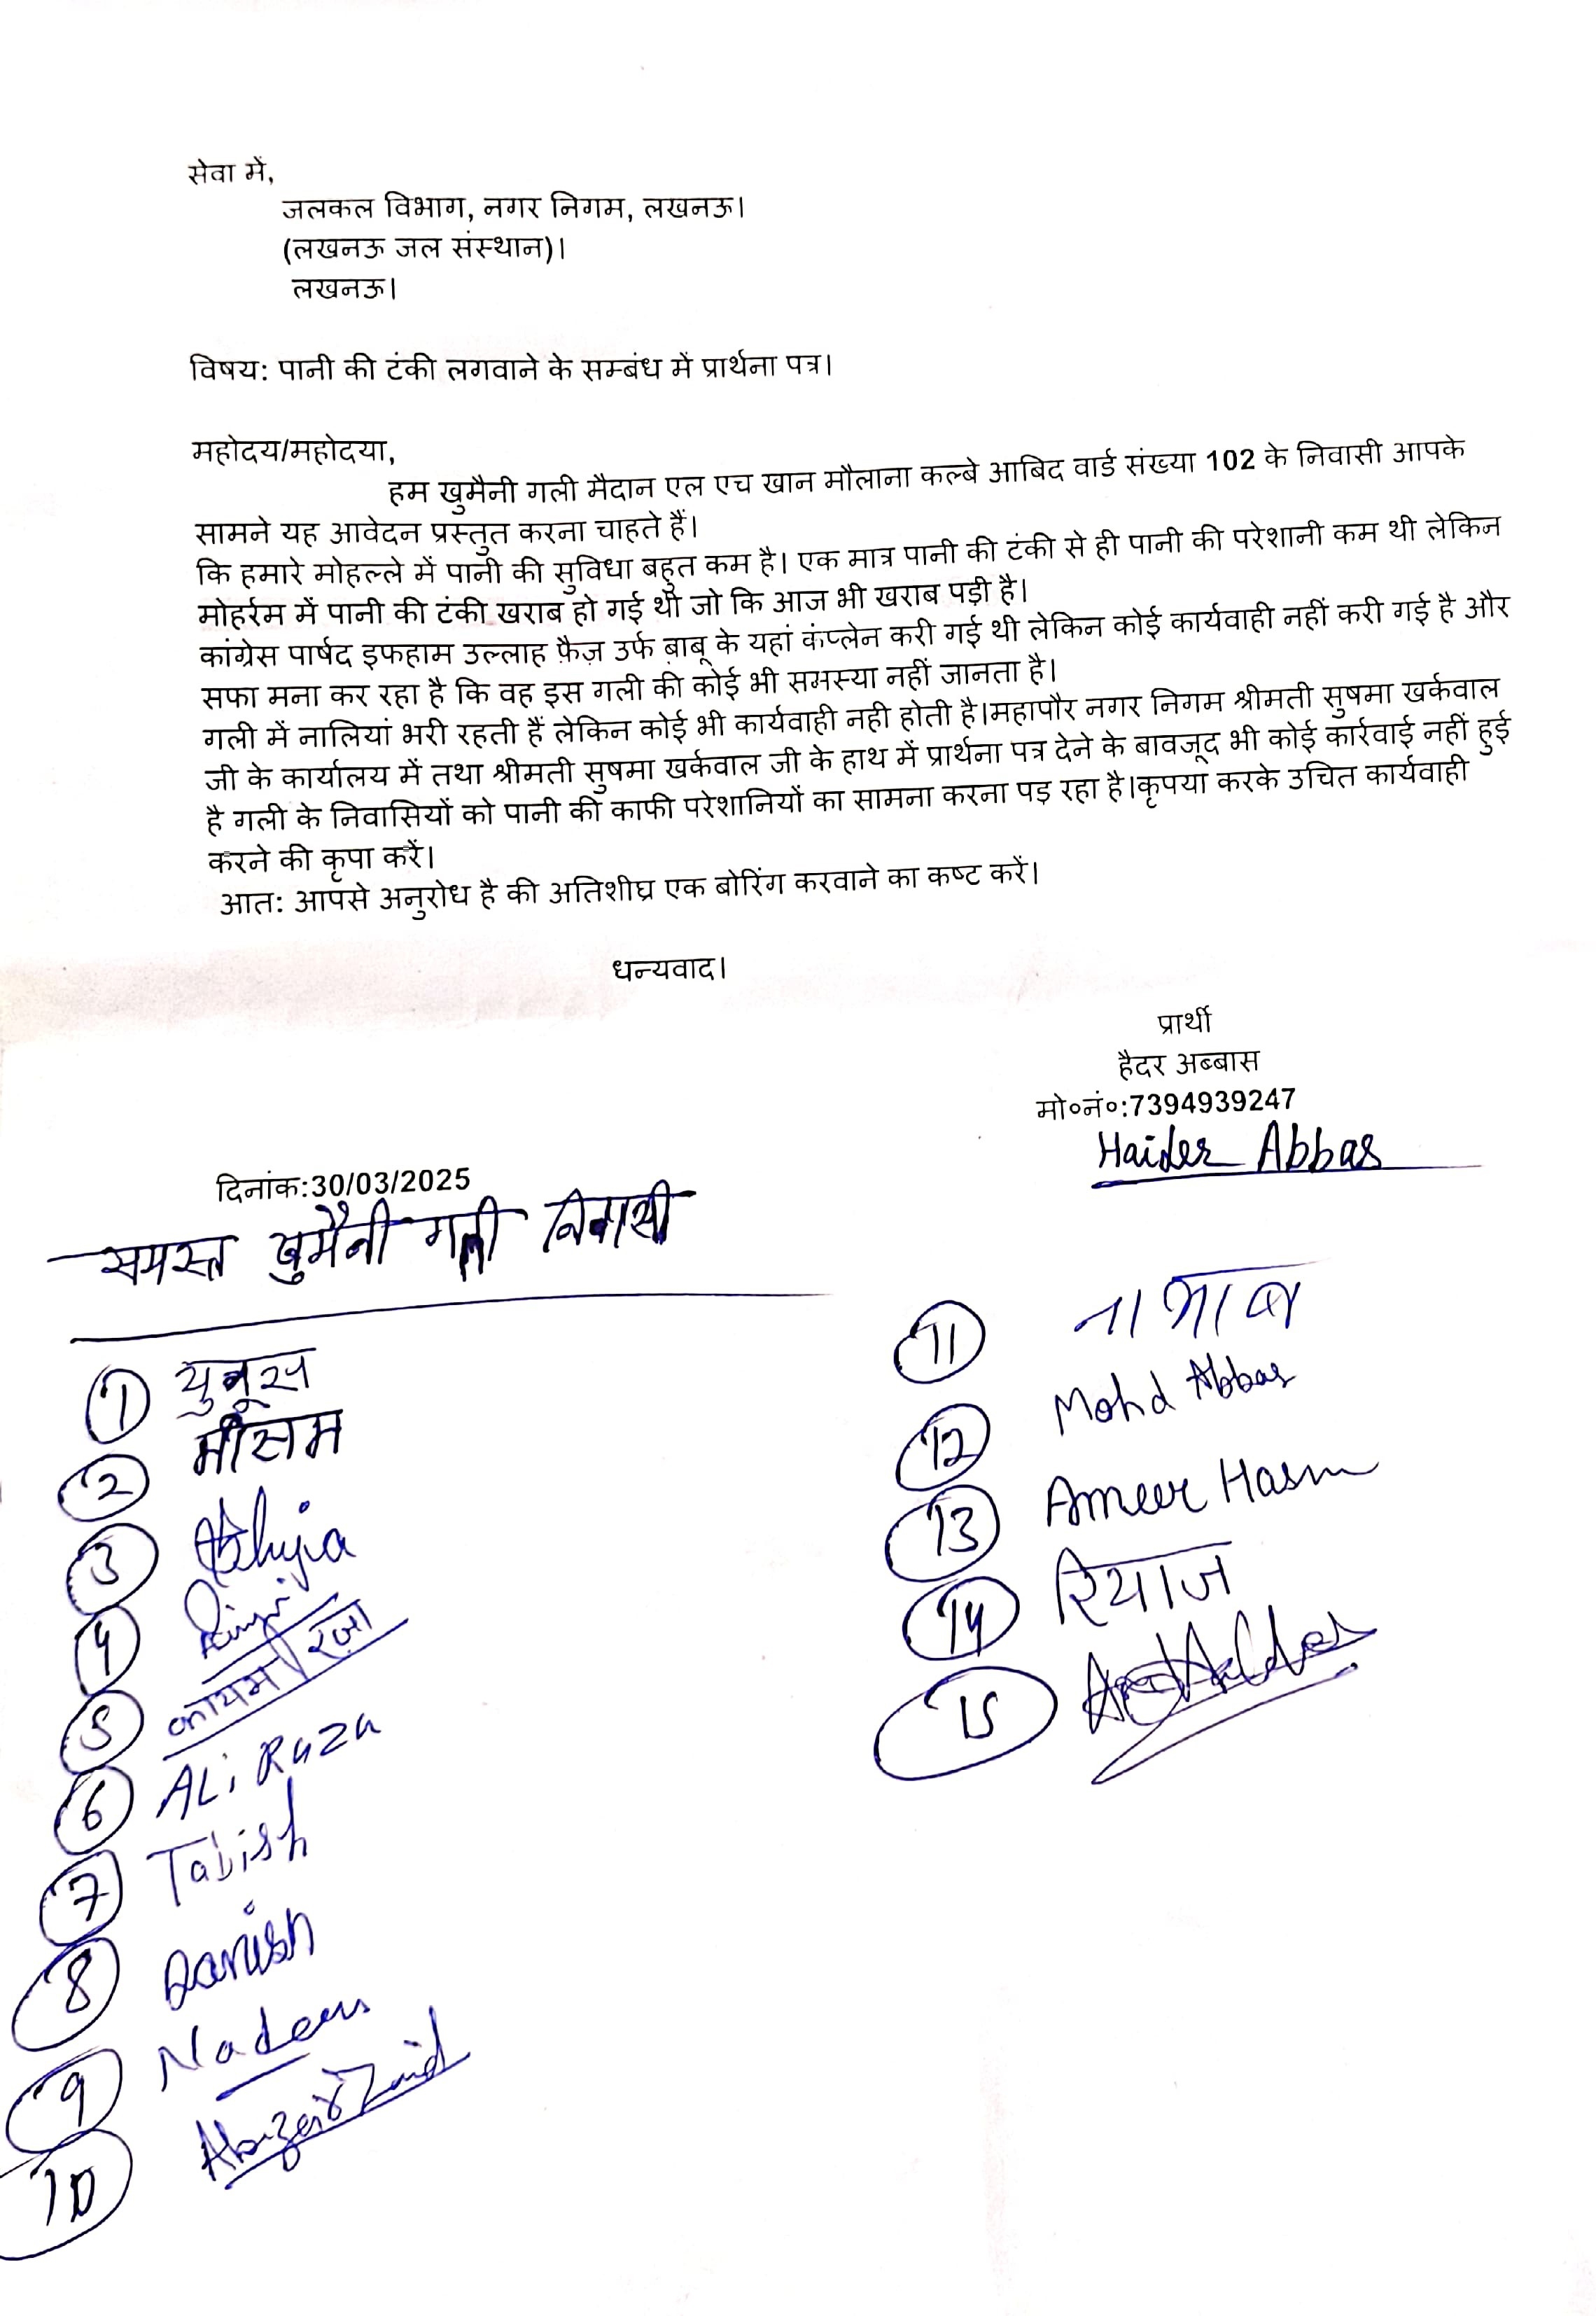 सेवा में,
जलकल विभाग, नगर निगम, लखनऊ।
(लखनऊ जल संस्थान)।
लखनऊ।
विषय: पानी की टंकी लगवाने के सम्बंध में प्रार्थना पत्र।
महोदय/महोदया,
हम खुमैनी गली मैदान एल एच खान मौलाना कल्बे आबिद वार्ड संख्या 102 के निवासी आपके
सामने यह आवेदन प्रस्तुत करना चाहते हैं।
कि हमारे मोहल्ले में पानी की सुविधा बहुत कम है। एक मात्र पानी की टंकी से ही पानी की परेशानी कम थी लेकिन
मोहर्रम में पानी की टंकी खराब हो गई थी जो कि आज भी खराब पड़ी है।
कांग्रेस पार्षद इफहाम उल्लाह फ़ैज़ उर्फ बाबू के यहां कंप्लेन करी गई थी लेकिन कोई कार्यवाही नहीं करी गई है और
सफा मना कर रहा है कि वह इस गली की कोई भी समस्या नहीं जानता है।
गली में नालियां भरी रहती हैं लेकिन कोई भी कार्यवाही नही होती है।महापौर नगर निगम श्रीमती सुषमा खर्कवाल
जी के कार्यालय में तथा श्रीमती सुषमा खर्कवाल जी के हाथ में प्रार्थना पत्र देने के बावजूद भी कोई कार्रवाई नहीं हुई
है गली के निवासियों को पानी की काफी परेशानियों का सामना करना पड़ रहा है।कृपया करके उचित कार्यवाही
करने की कृपा करें।
आत: आपसे अनुरोध है की अतिशीघ्र एक बोरिंग करवाने का कष्ट करें।
धन्यवाद।
प्रार्थी
हैदर अब्बास
मो०नं०:7394939247
Haider Abbas
दिनांक:30/03/2025
समस्त खुमैनी गली निवासी
1 युनूस
2 मीसम
3
4
5 कायम रज़ा
6 ALi Raza
7 Tabish
8 Danish
9 Nadeem
10 Abuzar Zaid
11
12 Mohd Abbas
13 Ameer Hasan
14 रियाज
15